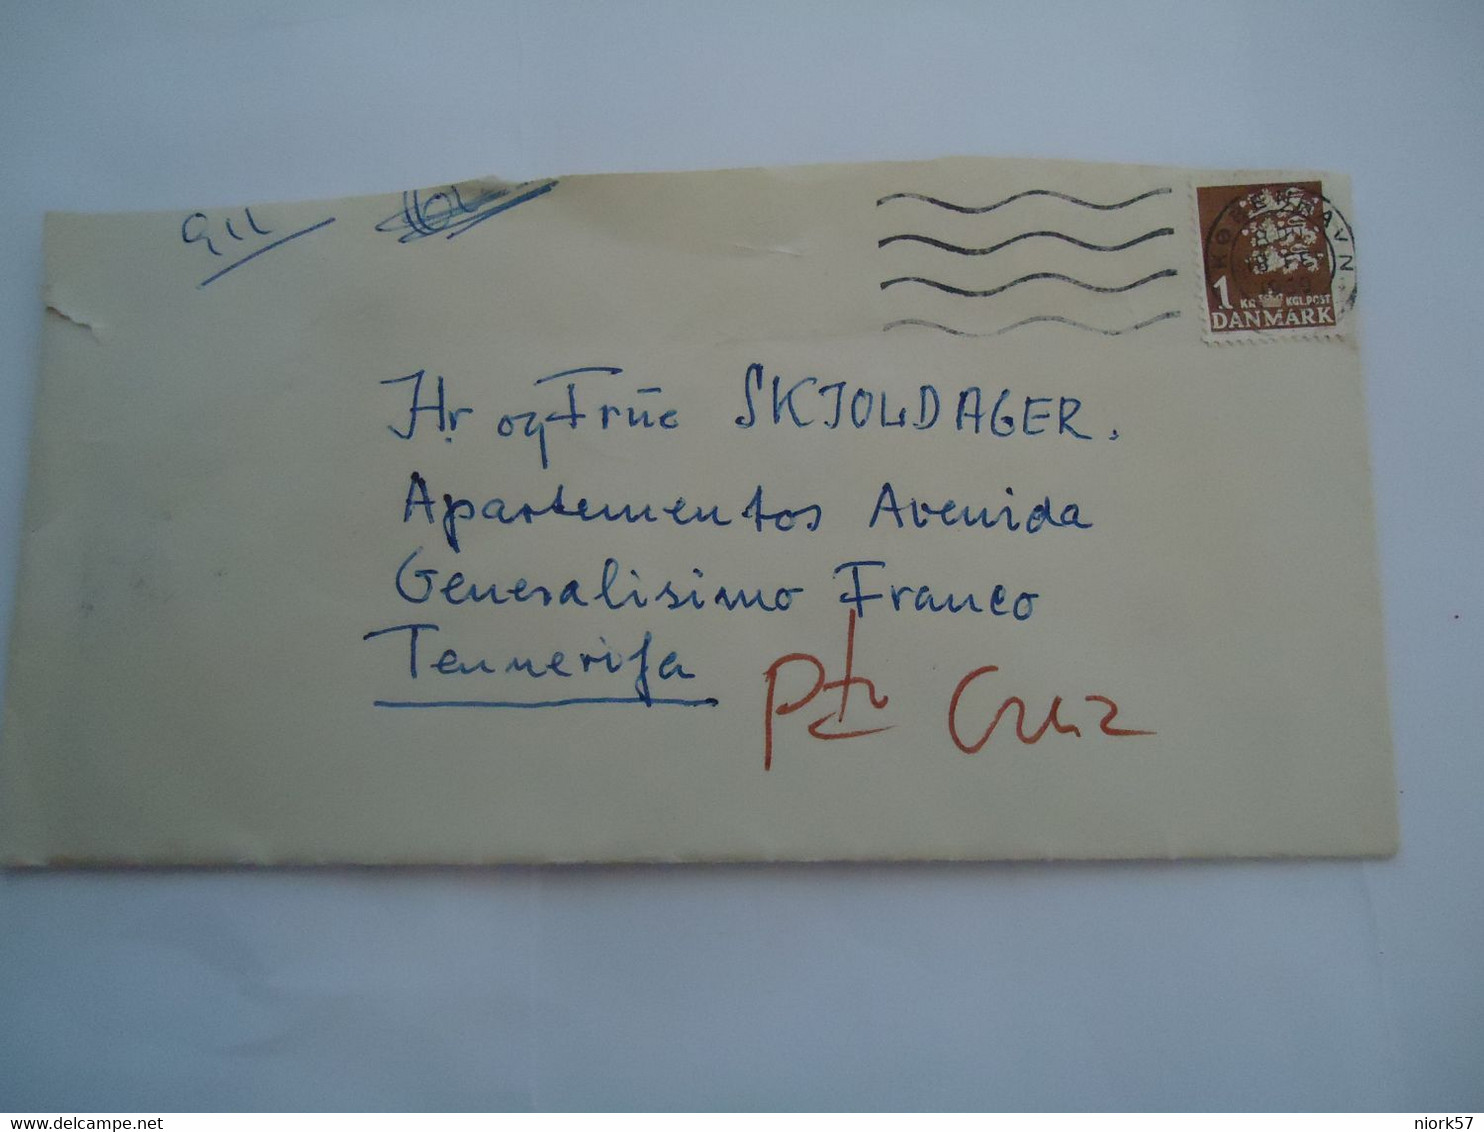 911
KØBENHAVN
1 KR KGL.POST
DANMARK
Hr og Frue SKJOLDAGER.
Apartementos Avenida
Generalisimo Franco
Tennerifa
Pto Cruz
niork57